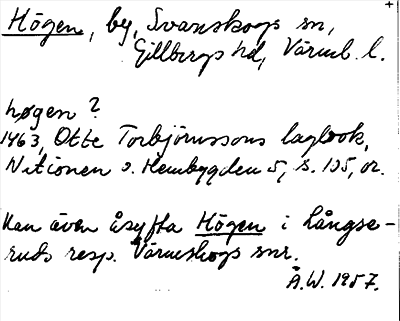 Högen, by, Svanskogs sn,
Gillbergs hd, Värml. l.
høgen?
1463, Otte Torbjörnssons lagbok,
Nationen o. Hembygden 5, s. 105, or.
Kan även åsyfta Högen i Långse-
ruds resp. Värmskogs snr.
Å.W. 1957.